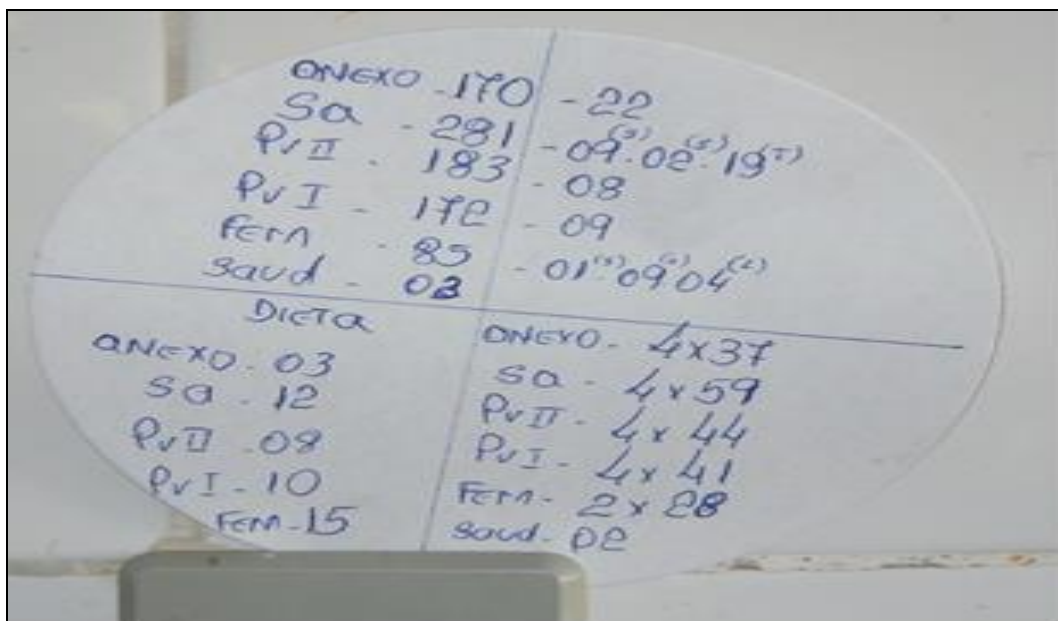 ANEXO - 170 - 22
Sa - 281 - 09(3) - 02(5) - 19(5)
PV II - 183 - 08
PV I - 172 - 09
Fem - 85 - 01(5) 09 04(2)
Saud - 03
DIETA
ANEXO - 03
Sa - 12
PV II - 08
PV I - 10
Fem - 15
ANEXO - 4x37
Sa - 4x59
PV II - 4x44
PV I - 4x41
Fem - 2x28
Saud - 02